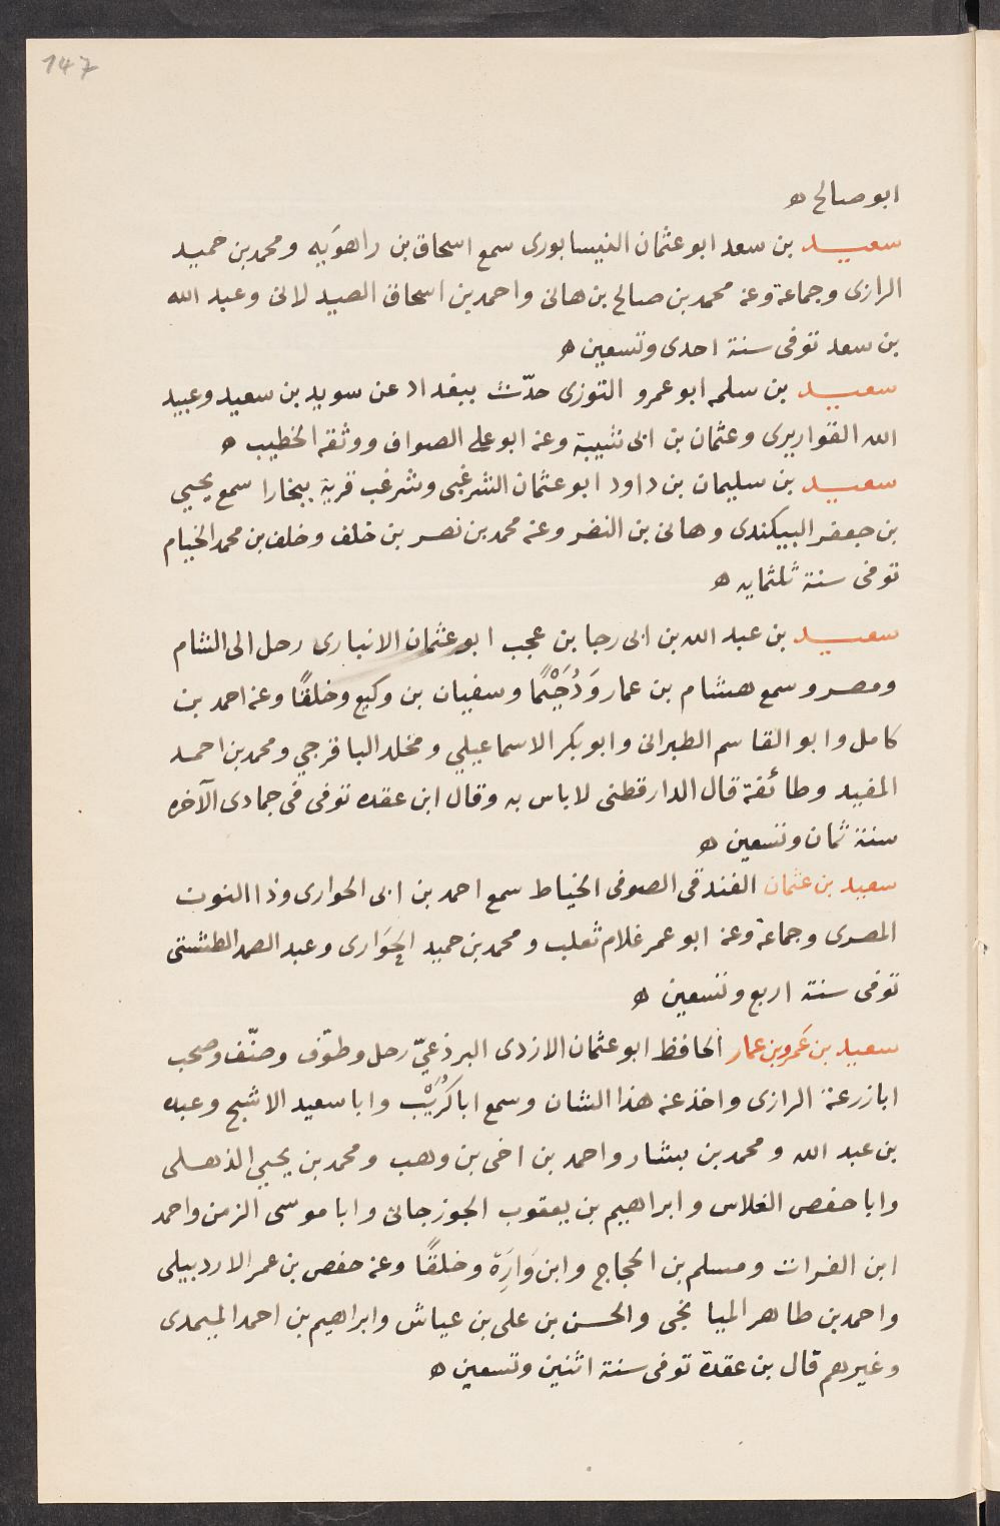 147
ابو صالح ه
سعيد بن سعد ابو عثمان النيسابورى سمع اسحاق بن راهوَيه ومحمد بن حميد
الرازى وجماعة وعنه محمد بن صالح بن هانى واحمد بن اسحاق الصيدلانى وعبد الله
بن سعد توفى سنة احدى وتسعين ه
سعيد بن سلمه ابو عمرو التوزى حدّث ببغداد عن سويد بن سعيد وعبيد
الله القواريرى وعثمان بن ابى شيبة وعنه ابو على الصواف ووثقه الخطيب ه
سعيد بن سليمان بن داود ابو عثمان الشرغبى وشرغب قرية ببخارا سمع يحيي
بن جعفر البيكندى وهانى بن النضر وعنه محمد بن نصر بن خلف وخلف بن محمد الخيام
توفى سنة ثلثمايه ه
سعيد بن عبد الله بن ابى رجا بن عجب ابو عثمان الانبارى رحل الى الشام
ومصر وسمع هشام بن عمار وَدُحَيْمًا وسفيان بن وكيع وخلقًا وعنه احمد بن
كامل وابو القاسم الطبرانى وابو بكر الاسماعيلي ومخلد الباقرجي ومحمد بن احمد
المفيد وطائفة قال الدارقطنى لاباس به وقال ابن عقده توفى فى جمادى الآخره
سنة ثمان وتسعين ه
سعيد بن عثمان الفندقى الصوفى الخياط سمع احمد بن ابى الحوارى وذا النون
المصرى وجماعة وعنه ابو عمر غلام ثعلب ومحمد بن حميد الحَوَارى وعبد الصمد الطشتى
توفى سنة اربع وتسعين ه
سعيد بن عَمرو بن عمار الحافظ ابو عثمان الازدى البرذعيّ رحل وطوّف وصنّف وصحب
ابا زرعة الرازى واخذ عنه هذا الشان وسمع ابا كُرَيْب وابا سعيد الاشج وعبده
بن عبد الله ومحمد بن بشار واحمد بن اخى بن وهب ومحمد بن يحيي الذهلى
وابا حفص الفلاس وابراهيم بن يعقوب الجوزجانى وابا موسى الزمن واحمد
ابن الفرات ومسلم بن الحجاج وابن وَارَة وخلقًا وعنه حفص بن عمر الاردبيلى
واحمد بن طاهر الميانجى والحسن بن على بن عياش وابراهيم بن احمد الميمدى
وغيرهم قال بن عقدة توفى سنة اثنين وتسعين ه